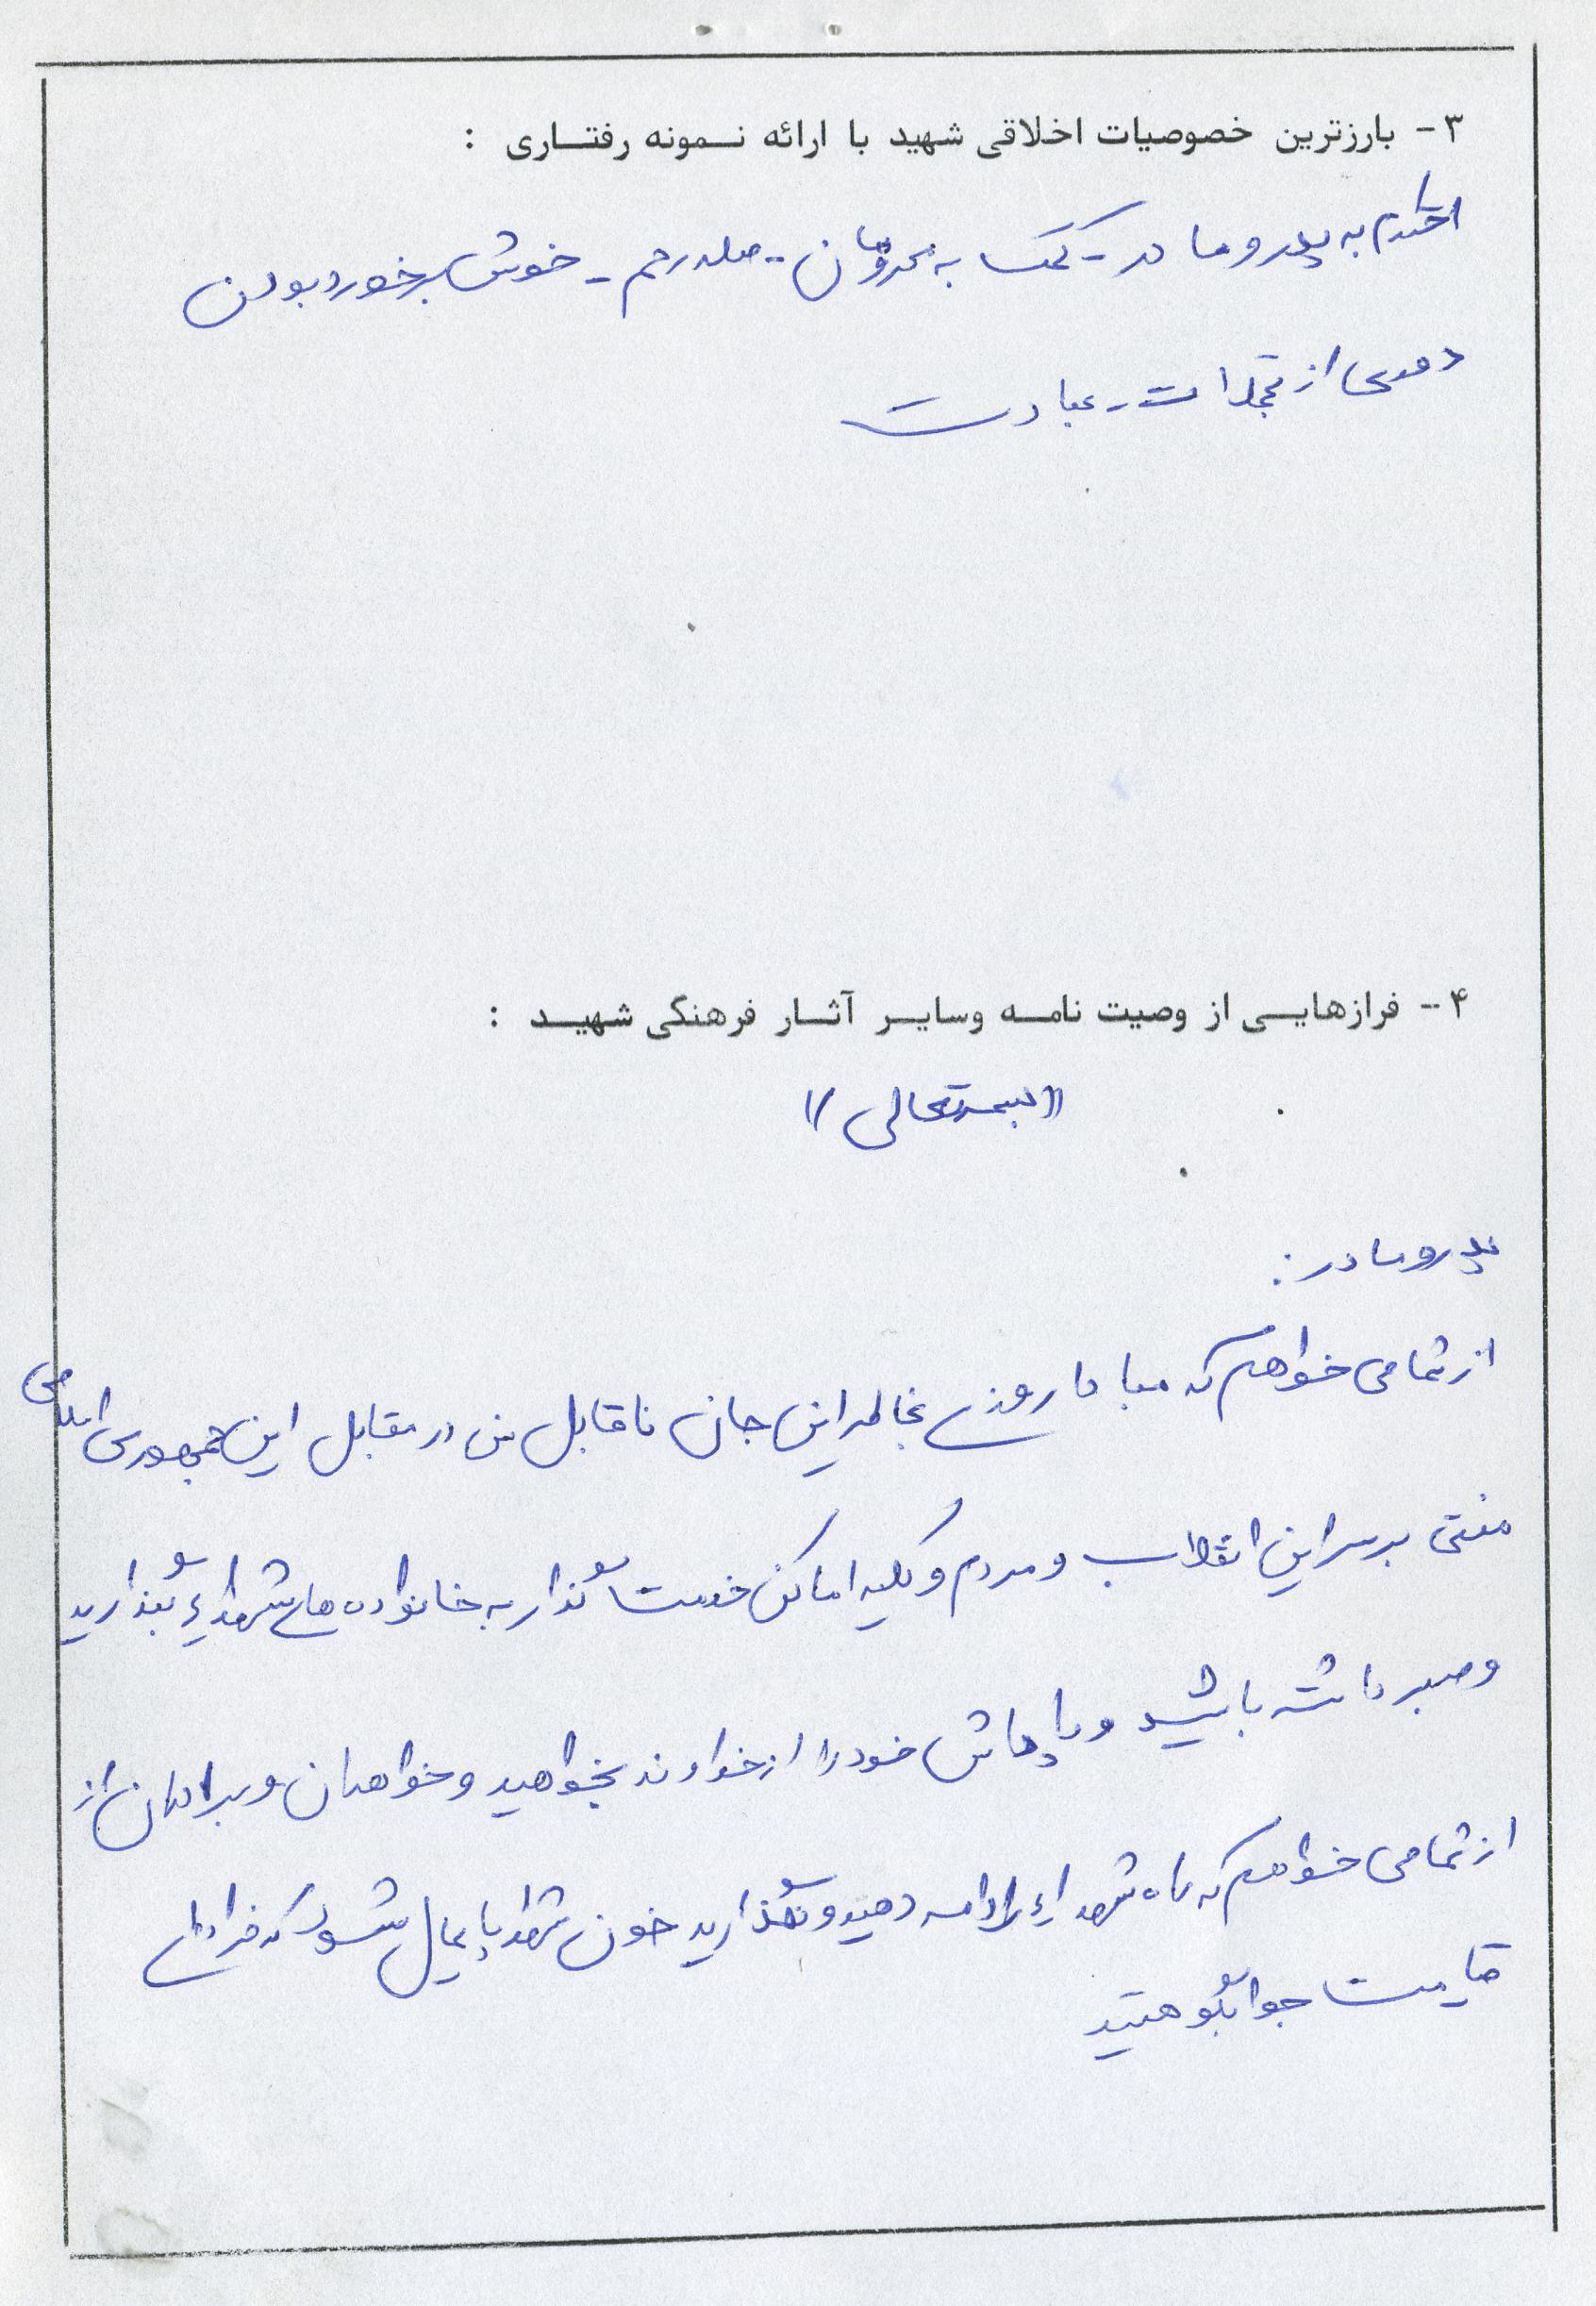 ۳- بارزترین خصوصیات اخلاقی شهید با ارائه نمونه رفتاری :
احترام به پدر و مادر - کمک به محرومان - صله رحم - خوش برخورد بودن
دوری از تجملات - عبادت
۴- فرازهایی از وصیت نامه وسایر آثار فرهنگی شهید :
((بسمه تعالی))
پدر و مادر :
از شما می خواهم که مبادا روزی بخاطر این جان ناقابل من در مقابل این جمهوری اسلامی
منتی بر سر این انقلاب و مردم و کلیه اماکن خدمت گذار به خانواده های شهداء بگذارید
و صبر داشته باشید و پاداش خود را از خداوند بخواهید و خواهران و برادران
از شما می خواهم که راه شهداء را ادامه دهید و نگذارید خون شهدا پایمال شود که فردای
قیامت جوابگو هستید